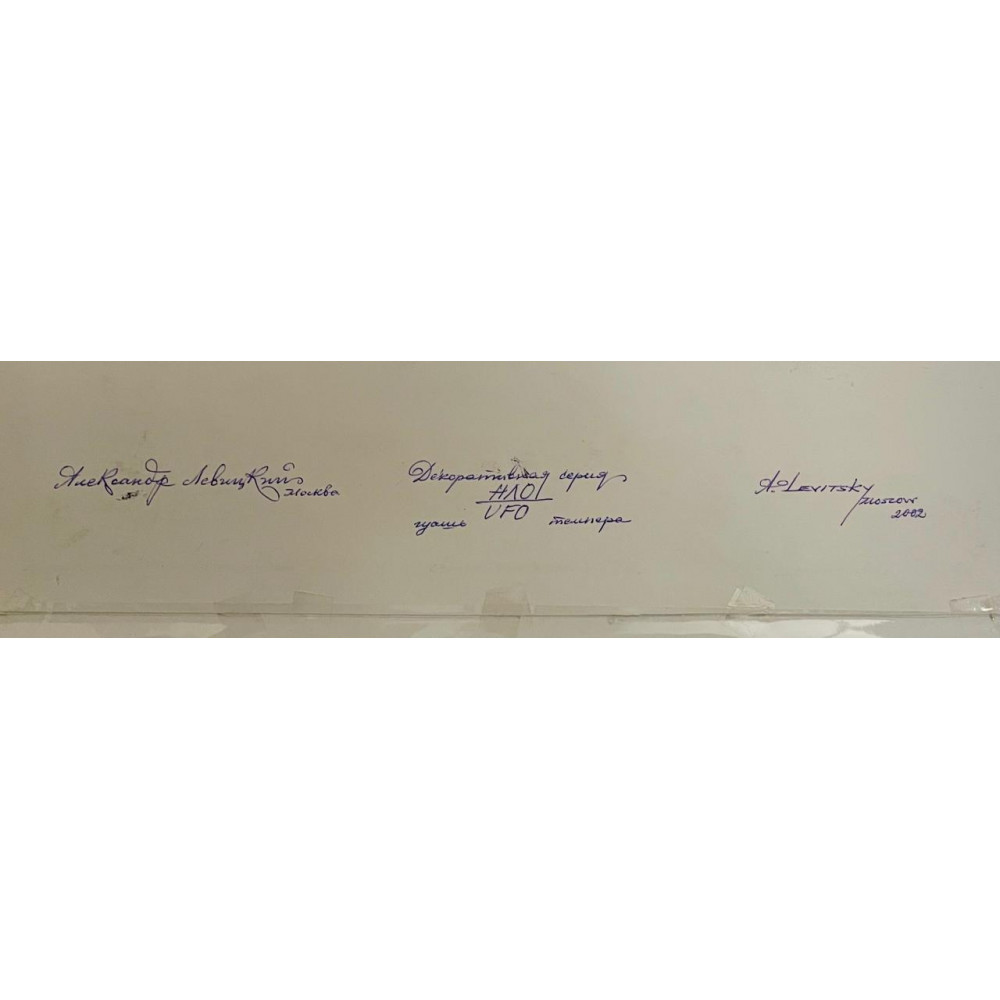 Александр Левицкий
Москва
Декоративная серия
НЛО
UFO
гуашь темпера
A. Levitsky
Moscow
2002